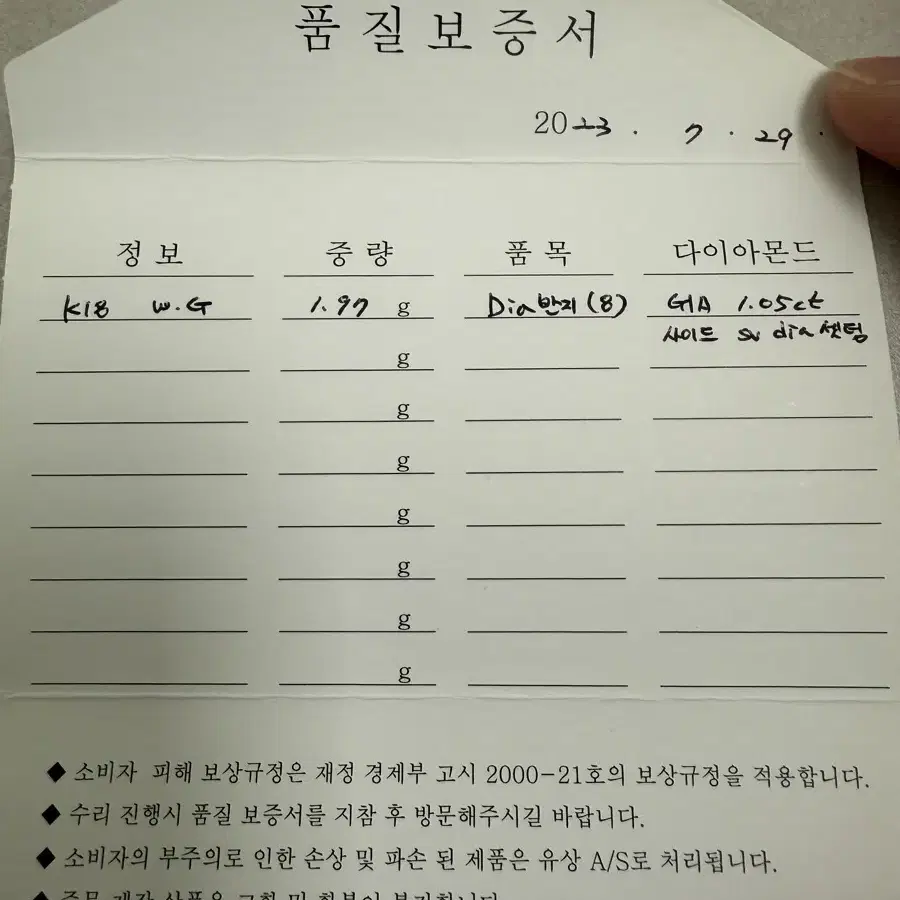 품질보증서
2023. 7. 29.
정보 중량 품목 다이아몬드
K18 W.G 1.97 g Dia반지(8) GIA 1.05ct
g 사이드 sv dia 셋팅
g
g
g
g
g
g
◆ 소비자 피해 보상규정은 재정 경제부 고시 2000-21호의 보상규정을 적용합니다.
◆ 수리 진행시 품질 보증서를 지참 후 방문해주시길 바랍니다.
◆ 소비자의 부주의로 인한 손상 및 파손 된 제품은 유상 A/S로 처리됩니다.